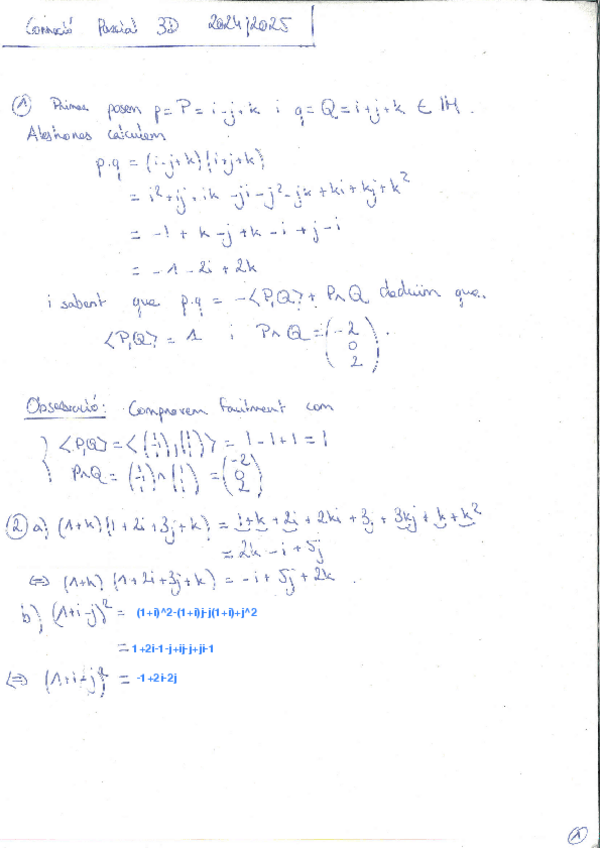 Correcció Parcial 3D 2024/2025
① Primer posem p = P = i-j+k i q = Q = i+j+k ∈ IH.
Aleshores calculem
p.q = (i-j+k)(i+j+k)
= i²+ij+ik -ji-j²-jk+ki+kj+k²
= -1+k-j+k-i+j-i
= -1-2i+2k
i sabent que p.q = -<P,Q> + P∧Q deduïm que.
<P,Q> = 1 i P∧Q = (-2 0 2).
Observació: Comprovem facilment com
<P,Q> = <(1 -1 1),(1 1 1)> = 1-1+1 = 1
P∧Q = (1 -1 1)∧(1 1 1) = (-2 0 2)
② a) (1+k)(1+2i+3j+k) = 1+k+2i+2ki+3j+3kj+k+k²
= 2k-i+5j
⇔ (1+k)(1+2i+3j+k) = -i+5j+2k
b) (1+i-j)² = (1+i)^2-(1+i)j-j(1+i)+j^2
= 1+2i-1-j+ij-j+ji-1
⇔ (1+i-j)² = -1+2i-2j
1